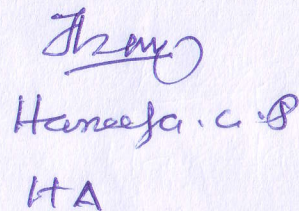 Haneefa. C. P
HA